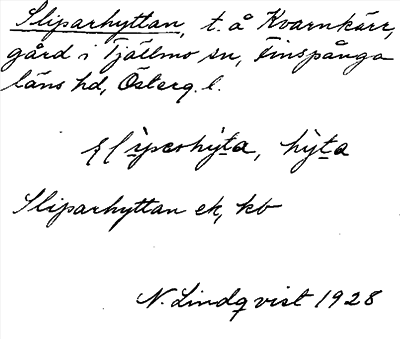 Sliparhyttan, t. å Kvarnkärr,
gård i Tjällmo sn, Finspånga
läns hd, Österg. l.
hy̱ta
Sliparhyttan ek, kb
N. Lindqvist 1928